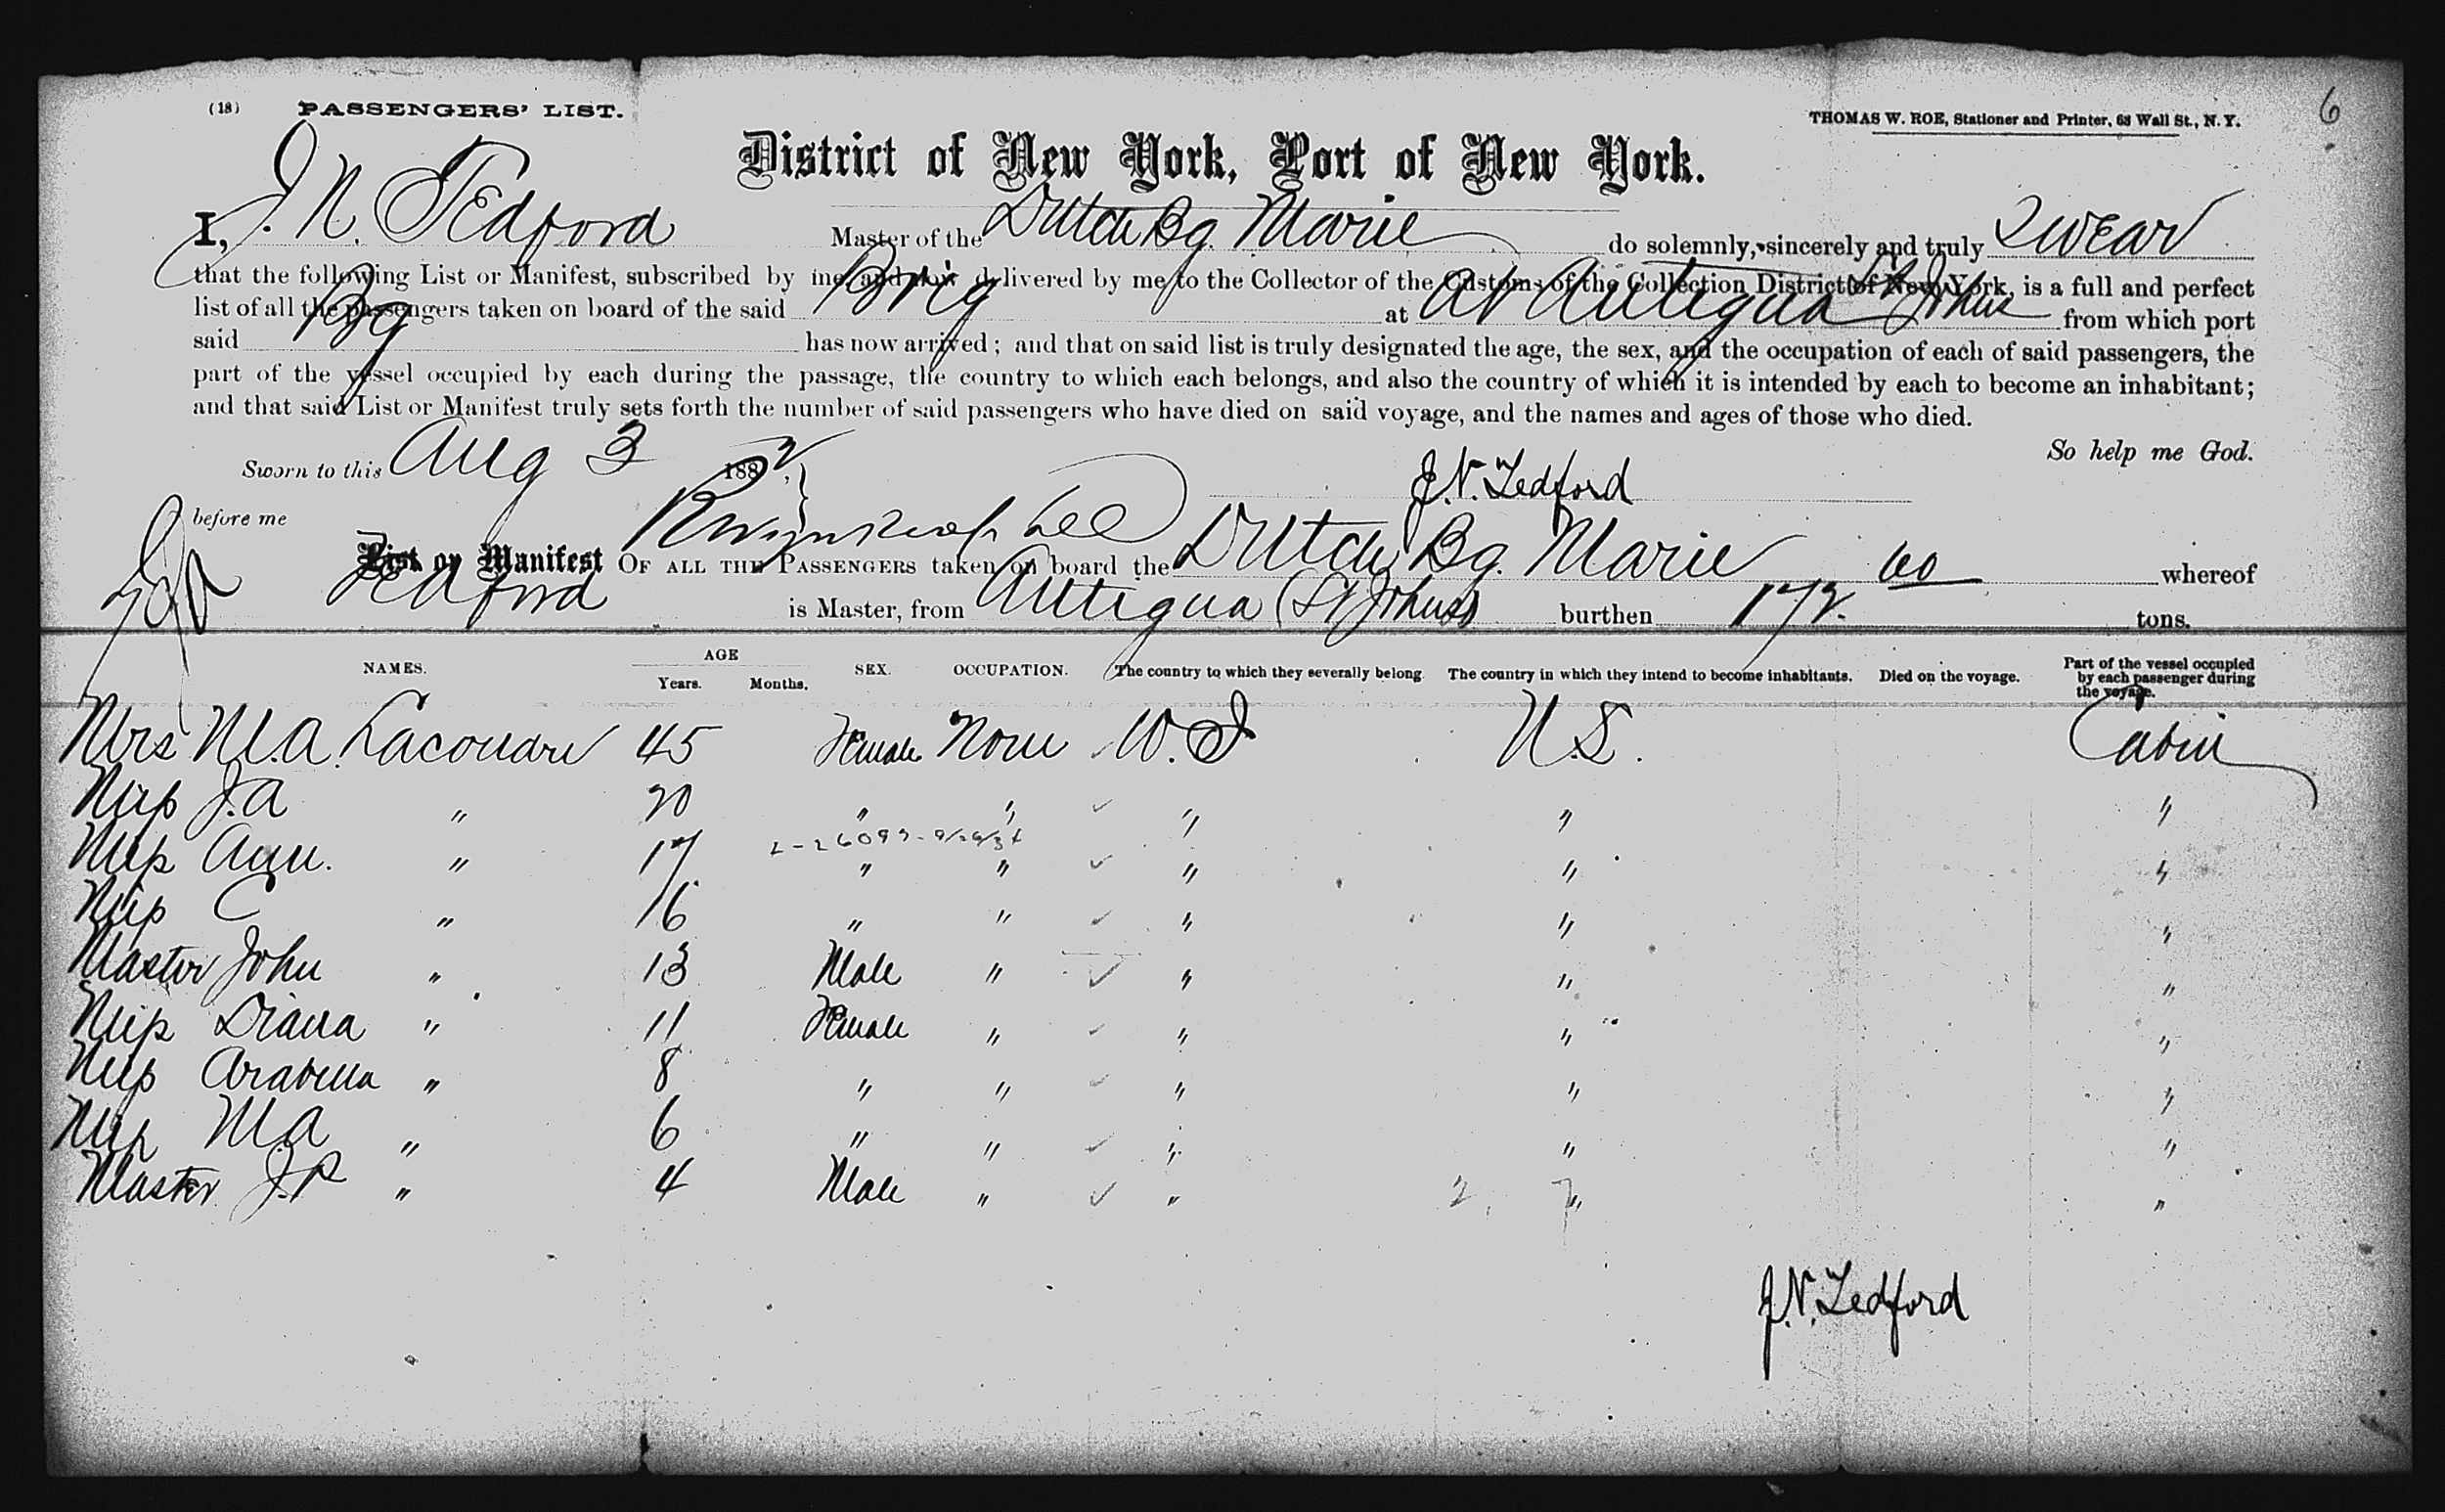 6
(18) PASSENGERS' LIST. THOMAS W. ROE, Stationer and Printer, 63 Wall St., N.Y.
District of New York, Port of New York.
I, J. N. Tedford Master of the Dutch Bg. Marie do solemnly, sincerely and truly swear
that the following List or Manifest, subscribed by me and now delivered by me to the Collector of the Customs of the Collection District of New York, is a full and perfect
list of all the passengers taken on board of the said Brig at at Antigua St Johns from which port
said Bg has now arrived; and that on said list is truly designated the age, the sex, and the occupation of each of said passengers, the
part of the vessel occupied by each during the passage, the country to which each belongs, and also the country of which it is intended by each to become an inhabitant;
and that said List or Manifest truly sets forth the number of said passengers who have died on said voyage, and the names and ages of those who died.
So help me God.
Sworn to this Aug 3 1882,
J. N. Tedford
before me
List or Manifest OF ALL THE PASSENGERS taken on board the Dutch Bg. Marie whereof
Tedford is Master, from Antigua (St Johns) burthen 172 60 tons.
NAMES. AGE Years. Months. SEX. OCCUPATION. The country to which they severally belong. The country in which they intend to become inhabitants. Died on the voyage. Part of the vessel occupied by each passenger during the voyage.
Mrs M.A. 45 Female None W.I U.S. Cabin
Miss J.A " 20 " " " " "
Miss Ann. " 17 " " " " "
Miss C " 16 " " " " "
Master John " 13 Male " " " "
Miss Diana " 11 Female " " " "
Miss Arabella " 8 " " " " "
Miss M.A " 6 " " " " "
Master J.P " 4 Male " " " "
J. N. Tedford